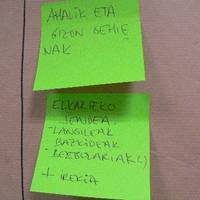 AHALIK ETA
GIZON GEHIE
NAK
ELKARTEKO
JENDEA
- LANGILEAK
BAZKIDEAK
- BERBOLARIAK (,)
+ IREKIA